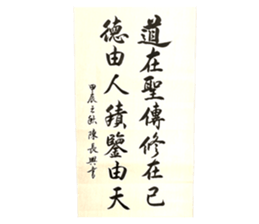 道在聖傳修在己
德由人積鑒由天
甲辰之秋 陳長興書